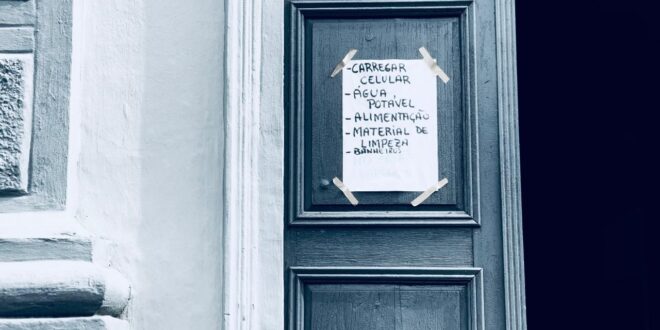 - CARREGAR
CELULAR
- ÁGUA
POTÁVEL
- ALIMENTAÇÃO
- MATERIAL DE
LIMPEZA
- BANHEIROS